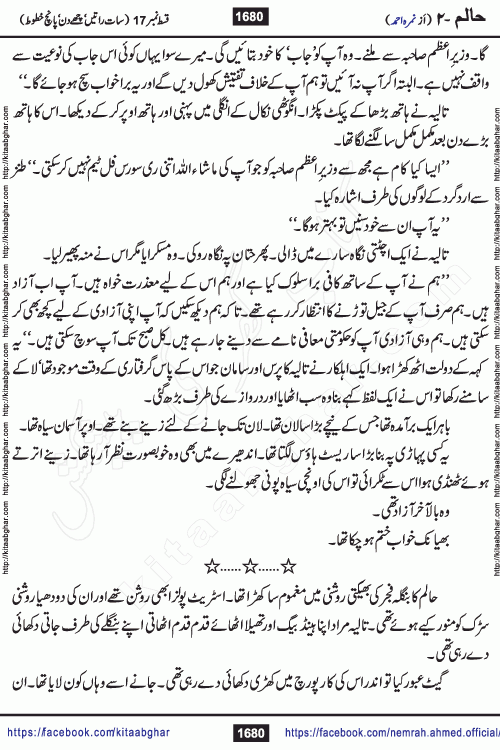 حالم -۲ (از نمرہ احمد) 1680 قسط نمبر 17 (سات راتیں، چھے دن، پانچ خطوط)
گا۔ وزیرِ اعظم صاحبہ سے ملنے۔ وہ آپ کو 'جاب' کا خود بتائیں گی۔ میرے سوا یہاں کوئی اس جاب کی نوعیت سے
واقف نہیں ہے۔ البتہ اگر آپ نہ آئیں تو ہم آپ کے خلاف تفتیش کھول دیں گے اور یہ برا خواب سچ ہو جائے گا۔''
تالیہ نے ہاتھ بڑھا کے پیکٹ پکڑا۔ انگوٹھی نکال کے انگلی میں پہنی اور ہاتھ اوپر کر کے دیکھا۔ اس کا ہاتھ
بڑے دن بعد مکمل مکمل سا لگنے لگا تھا۔
''ایسا کیا کام ہے مجھ سے وزیرِ اعظم صاحبہ کو جو آپ کی ماشاء اللہ اتنی ری سورس فل ٹیم نہیں کر سکتی۔'' طنز
سے ارد گرد کے لوگوں کی طرف اشارہ کیا۔
''یہ آپ ان سے خود سنیں تو بہتر ہوگا۔''
تالیہ نے ایک اچٹتی نگاہ سارے میں ڈالی۔ پھر حتان پہ نگاہ روکی۔ وہ مسکرایا مگر اس نے منہ پھیر لیا۔
''ہم نے آپ کے ساتھ کافی برا سلوک کیا ہے اور ہم اس کے لیے معذرت خواہ ہیں۔ آپ اب آزاد
ہیں۔ ہم صرف آپ کے جیل توڑنے کا انتظار کر رہے تھے۔ تا کہ ہم دیکھ سکیں کہ آپ اپنی آزادی کے لیے کچھ بھی کر
سکتی ہیں۔ ہم وہی آزادی آپ کو حکومتی معافی نامے سے دینے جا رہے ہیں۔ کل صبح تک آپ سوچ سکتی ہیں۔'' یہ
کہہ کے دولت اٹھ کھڑا ہوا۔ ایک اہلکار نے تالیہ کا پرس اور سامان جو اس کے پاس گرفتاری کے وقت موجود تھا' لا کے
سامنے رکھا تو اس نے ایک لفظ کہے بنا وہ سب اٹھایا اور دروازے کی طرف بڑھ گئی۔
باہر ایک برآمدہ تھا جس کے نیچے بڑا سا لان تھا۔ لان تک جانے کے لئے زینے بنے تھے۔ اوپر آسمان سیاہ تھا۔
یہ کسی پہاڑی پہ بنا بڑا سا ریسٹ ہاؤس لگتا تھا۔ اندھیرے میں بھی وہ خوبصورت نظر آ رہا تھا۔ زینے اترتے
ہوئے ٹھنڈی ہوا اس سے ٹکرائی تو اس کی اونچی سیاہ پونی جھولنے لگی۔
وہ بالآخر آزاد تھی۔
بھیانک خواب ختم ہو چکا تھا۔
☆......☆......☆
حالم کا بنگلہ فجر کی بھیگتی روشنی میں مغموم سا کھڑا تھا۔ اسٹریٹ پولز ابھی روشن تھے اور ان کی دودھیا روشنی
سڑک کو منور کیے ہوئے تھی۔ تالیہ مراد اپنا ہینڈ بیگ اور تھیلا اٹھائے قدم قدم اٹھاتی اپنے بنگلے کی طرف جاتی دکھائی
دے رہی تھی۔
گیٹ عبور کیا تو اندر اس کی کار پورچ میں کھڑی دکھائی دے رہی تھی۔ جانے اسے وہاں کون لایا تھا۔ ان
https://facebook.com/kitaabghar 1680 https://facebook.com/nemrah.ahmed.official/
http://kitaabghar.com